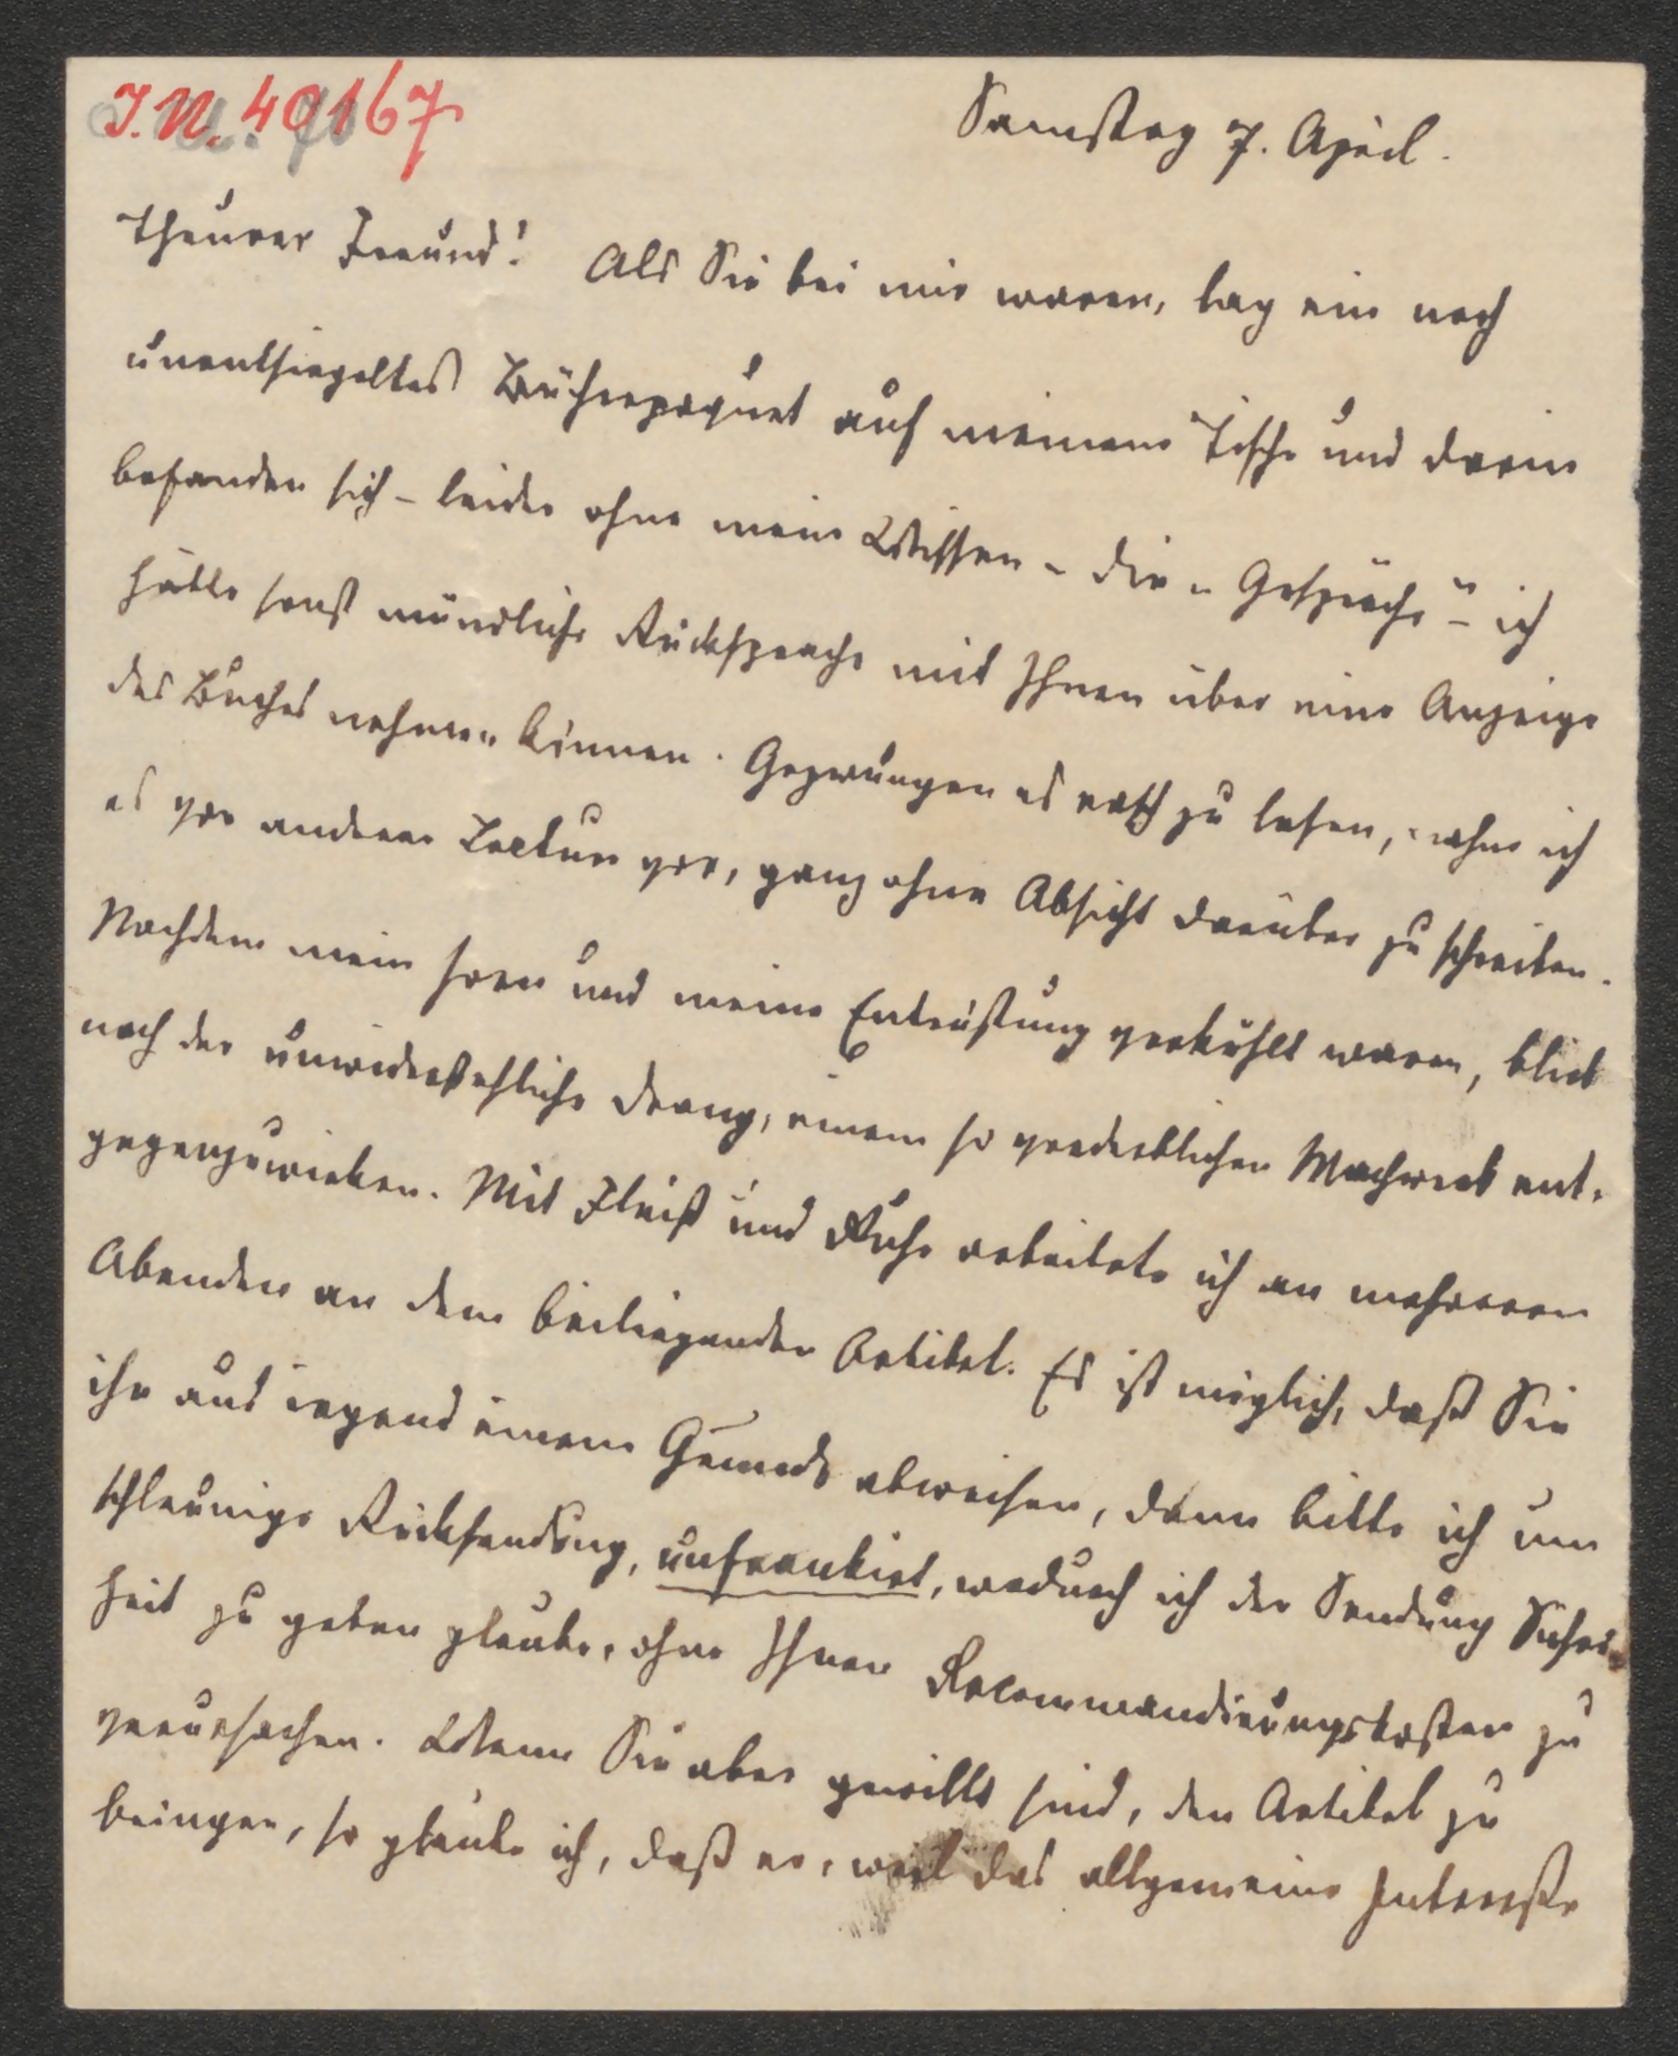 J.N. 49167
Samstag 7. April.
Theurer Freund! Als Sie bei mir waren, lag ein noch
unentsiegeltes Bücherpaquet auf meinem Tische und darin
befanden sich – leider ohne mein Wissen – die „Gespräche" – ich
hätte sonst mündliche Rücksprache mit Ihnen über eine Anzeige
des Buches nehmen können. Gezwungen es rasch zu lesen, nahm ich
es vor anderer Lectüre vor, ganz ohne Absicht darüber zu schreiben.
Nachdem mein Zorn und meine Entrüstung verkühlt waren, blieb
noch der unwiderstehliche Drang, einem so verderblichen Machwerk ent-
gegenzuwirken. Mit Fleiß und Ruhe arbeitete ich an mehreren
Abenden an dem beiliegenden Artikel. Es ist möglich, daß Sie
ihn aus irgend einem Grunde abweisen, dann bitte ich um
schleunige Rücksendung, unfrankirt, wodurch ich der Sendung Sicher-
heit zu geben glaube, ohne Ihnen Recommandirungskosten zu
verursachen. Wenn Sie aber gewillt sind, den Artikel zu
bringen, so glaube ich, daß er, weil das allgemeine Interesse